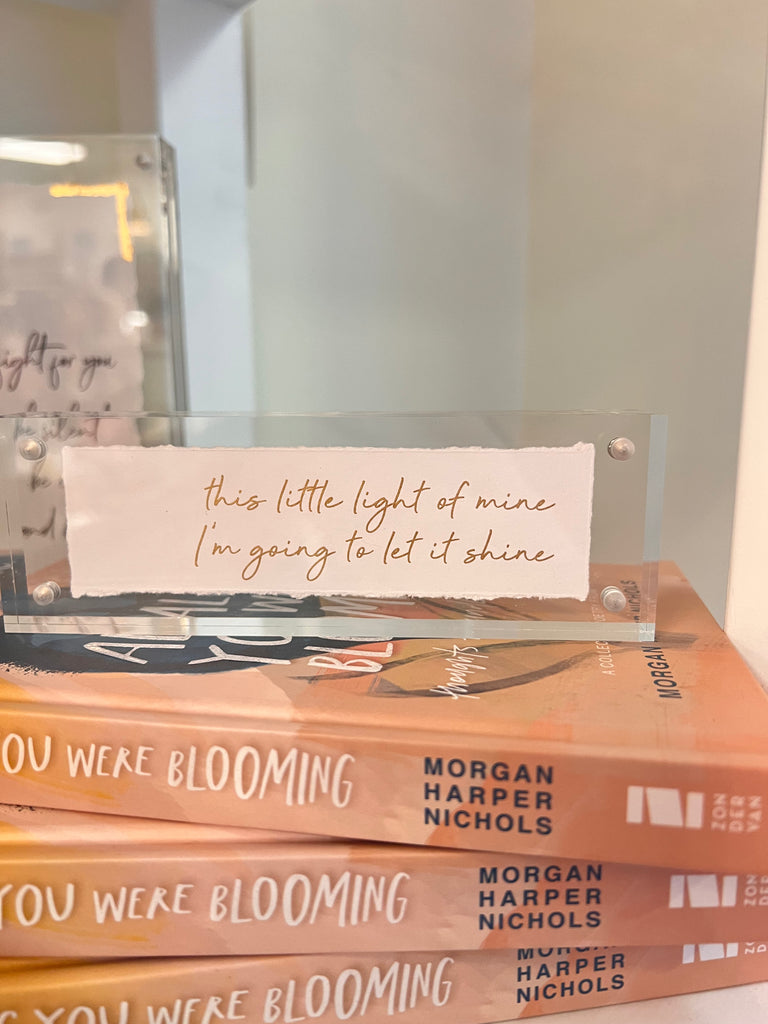 fight for you
be silent
be
and
this little light of mine
I'm going to let it shine
AL
YO
BL
thoughts
MORGAN
OU WERE BLOOMING
MORGAN
HARPER
NICHOLS
ZON
DER
VAN
YOU WERE BLOOMING
MORGAN
HARPER
NICHOLS
ZON
DER
YOU WERE BLOOMING
MORGAN
HARPER
NICHOLS